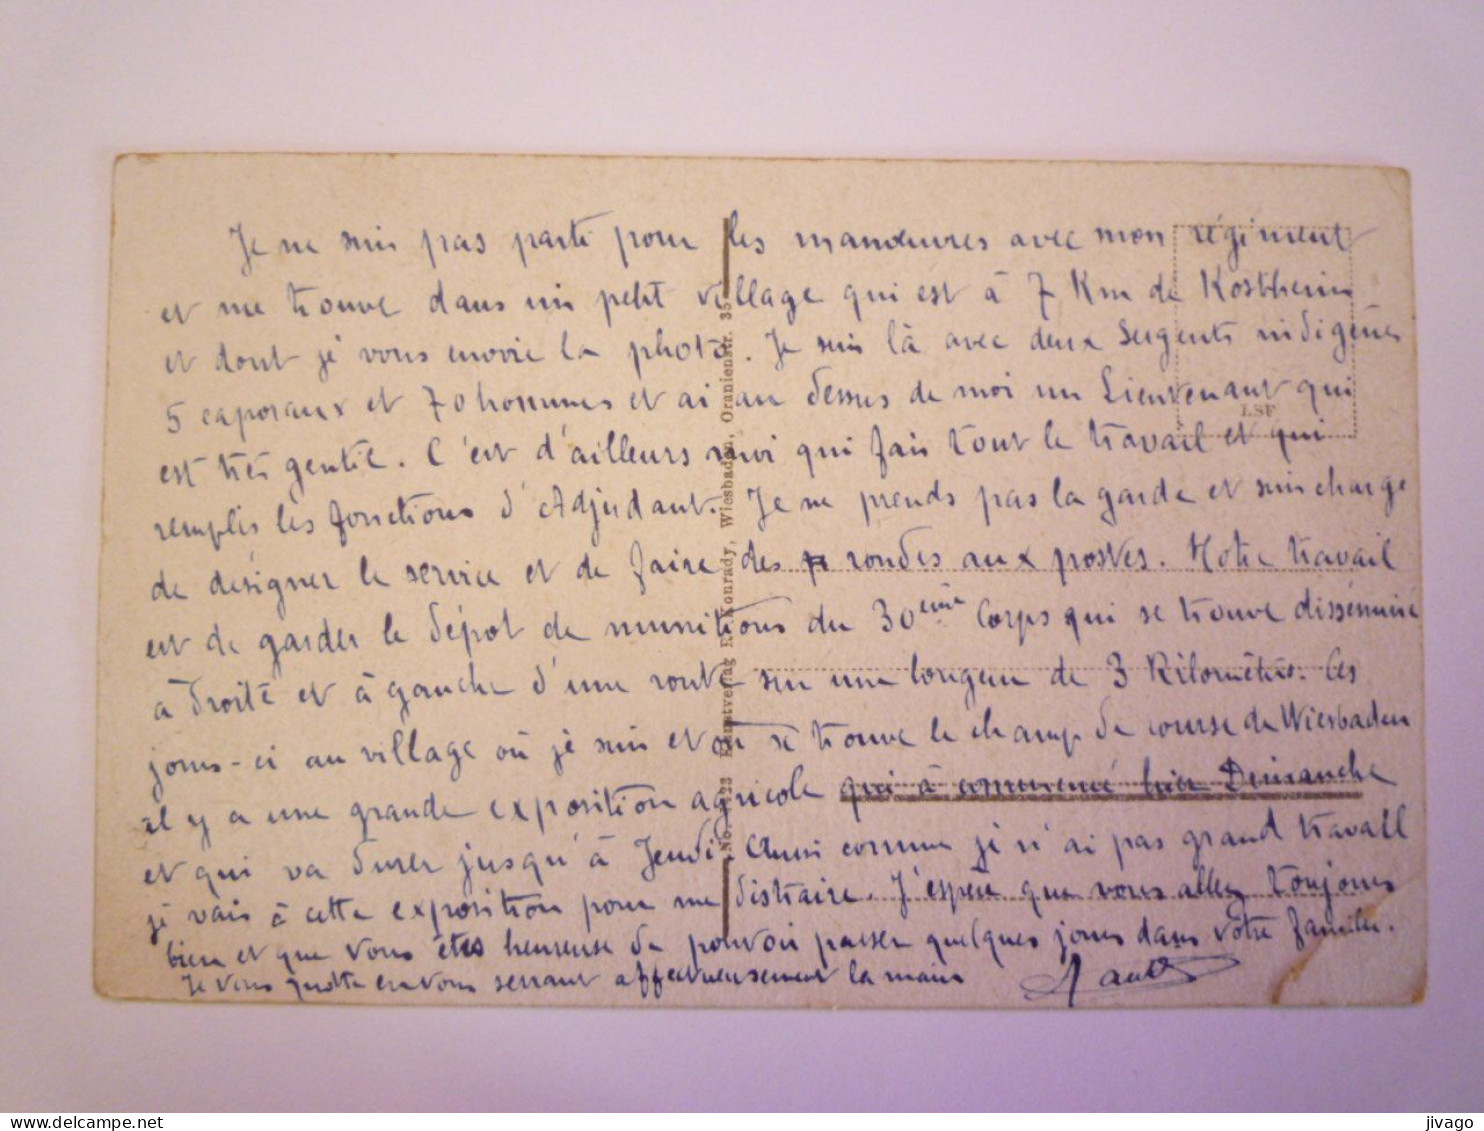 Je ne suis pas parti pour les manœuvres avec mon régiment
et me trouve dans un petit village qui est à 7 Km de Kostheim
et dont je vous envoie la photo. Je suis là avec deux Sergents indigènes
5 caporaux et 70 hommes et ai au dessus de moi un Lieutenant qui
est très gentil. C'est d'ailleurs moi qui fais tout le travail et qui
remplis les fonctions d'Adjudant. Je ne prends pas la garde et suis chargé
de désigner le service et de faire des rondes aux postes. Notre travail
est de garder le dépot de munitions du 30ème Corps qui se trouve disséminé
à droite et à gauche d'une route sur une longeur de 3 Kilomètres. Ces
jours-ci au village où je suis et où se trouve le champ de course de Wiesbaden
il y a une grande exposition agricole qui à commencé hier Dimanche
et qui va durer jusqu'à Jeudi. Aussi comme je n'ai pas grand travail
je vais à cette exposition pour me distraire. J'espère que vous allez toujours
bien et que vous êtes heureuse de pouvoir passer quelques jours dans votre famille.
Je vous quitte en vous serrant affectueusement la main
Kunstverlag E. Konrady, Wiesbaden, Oranienstr. 35
LSF
jivago
delcampe.net